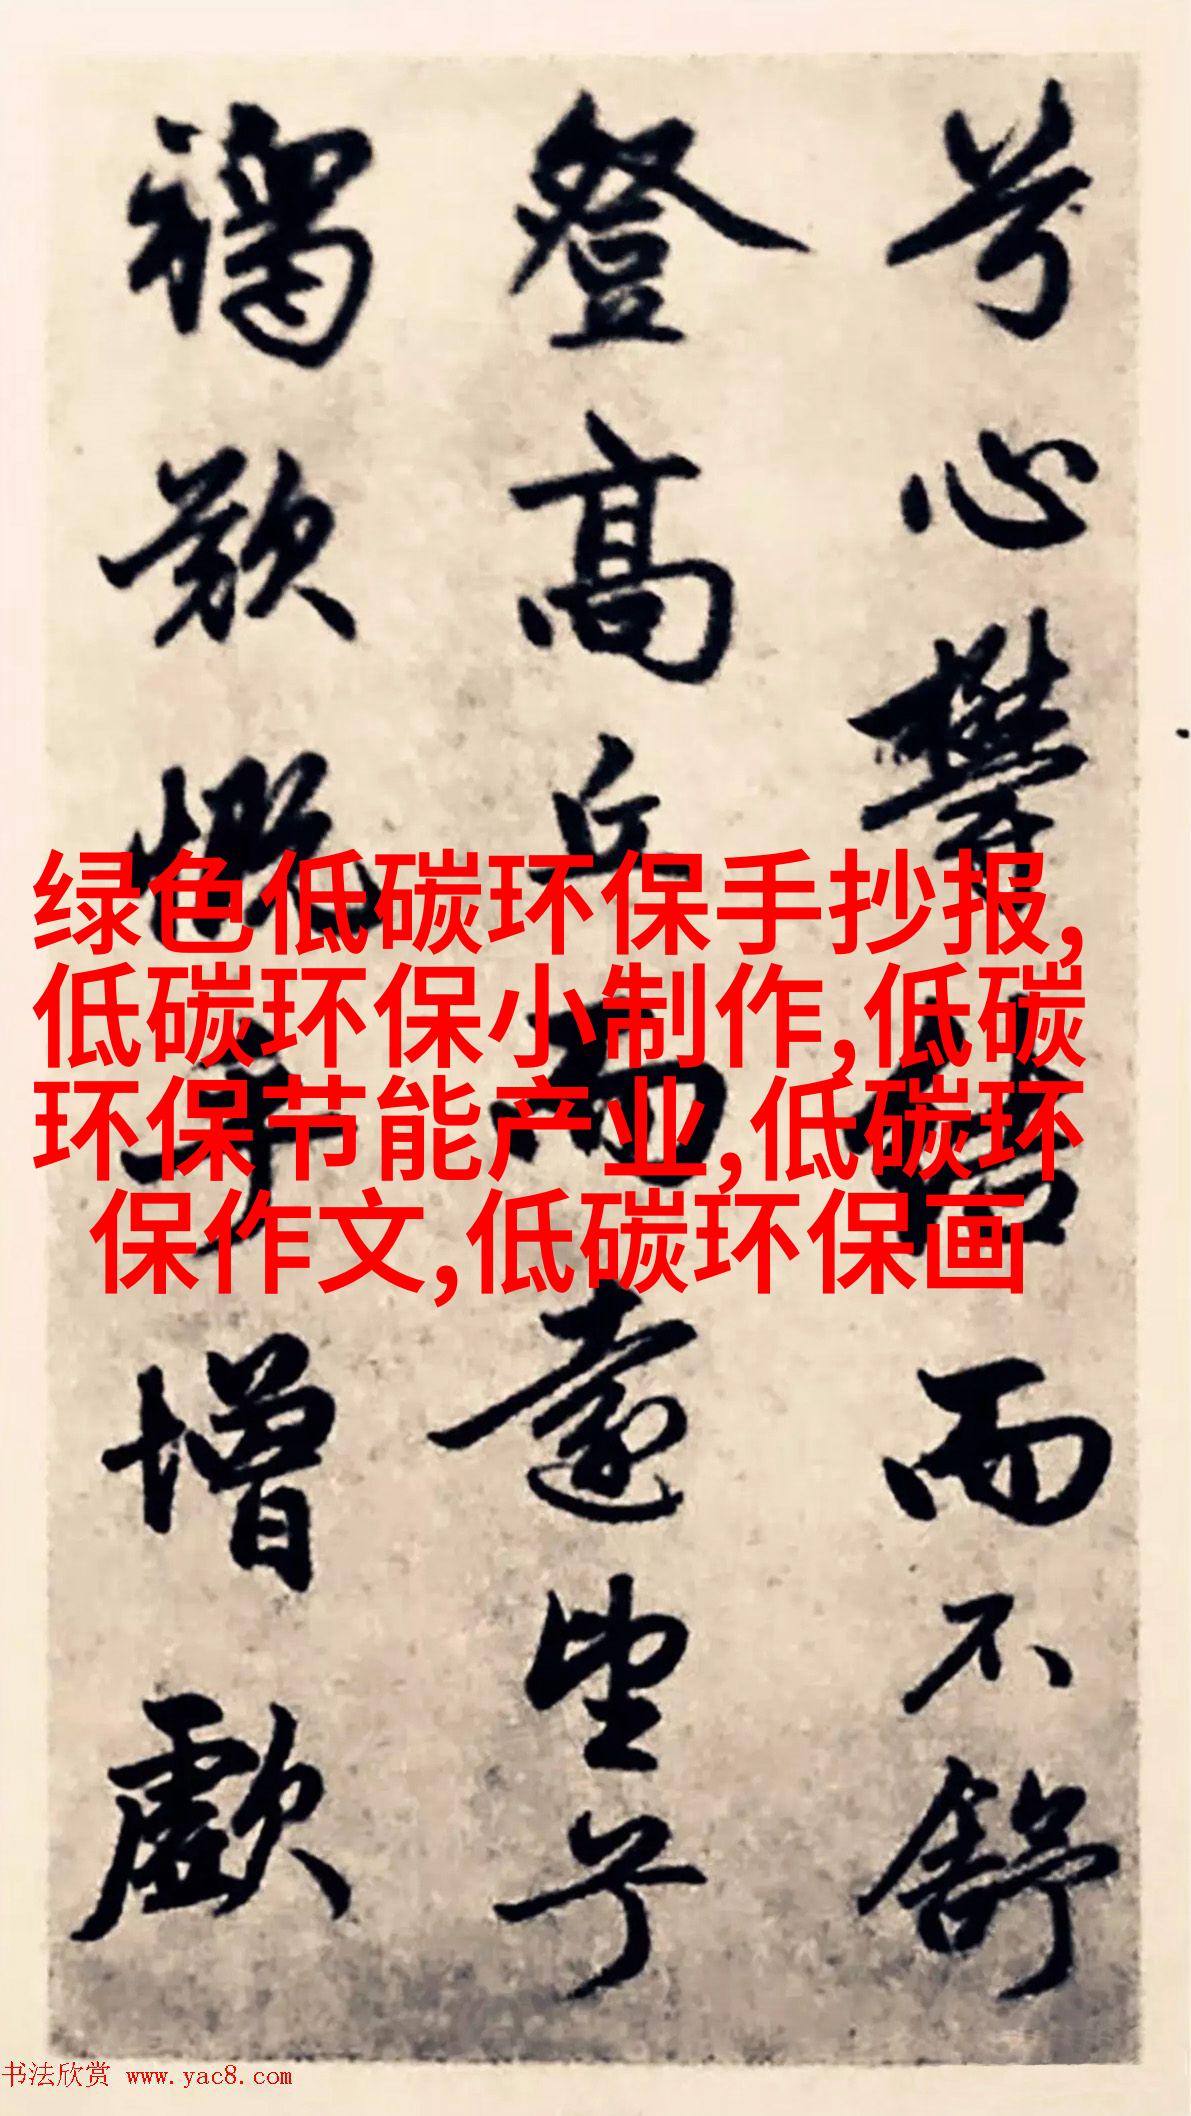 绿色低碳环保手抄报,
低碳环保小制作,低碳
环保节能产业,低碳环
保作文,低碳环保画
兮心鬱結而不舒
登高丘而遠望兮
歎慨于增歔
书法欣赏 www.yac8.com